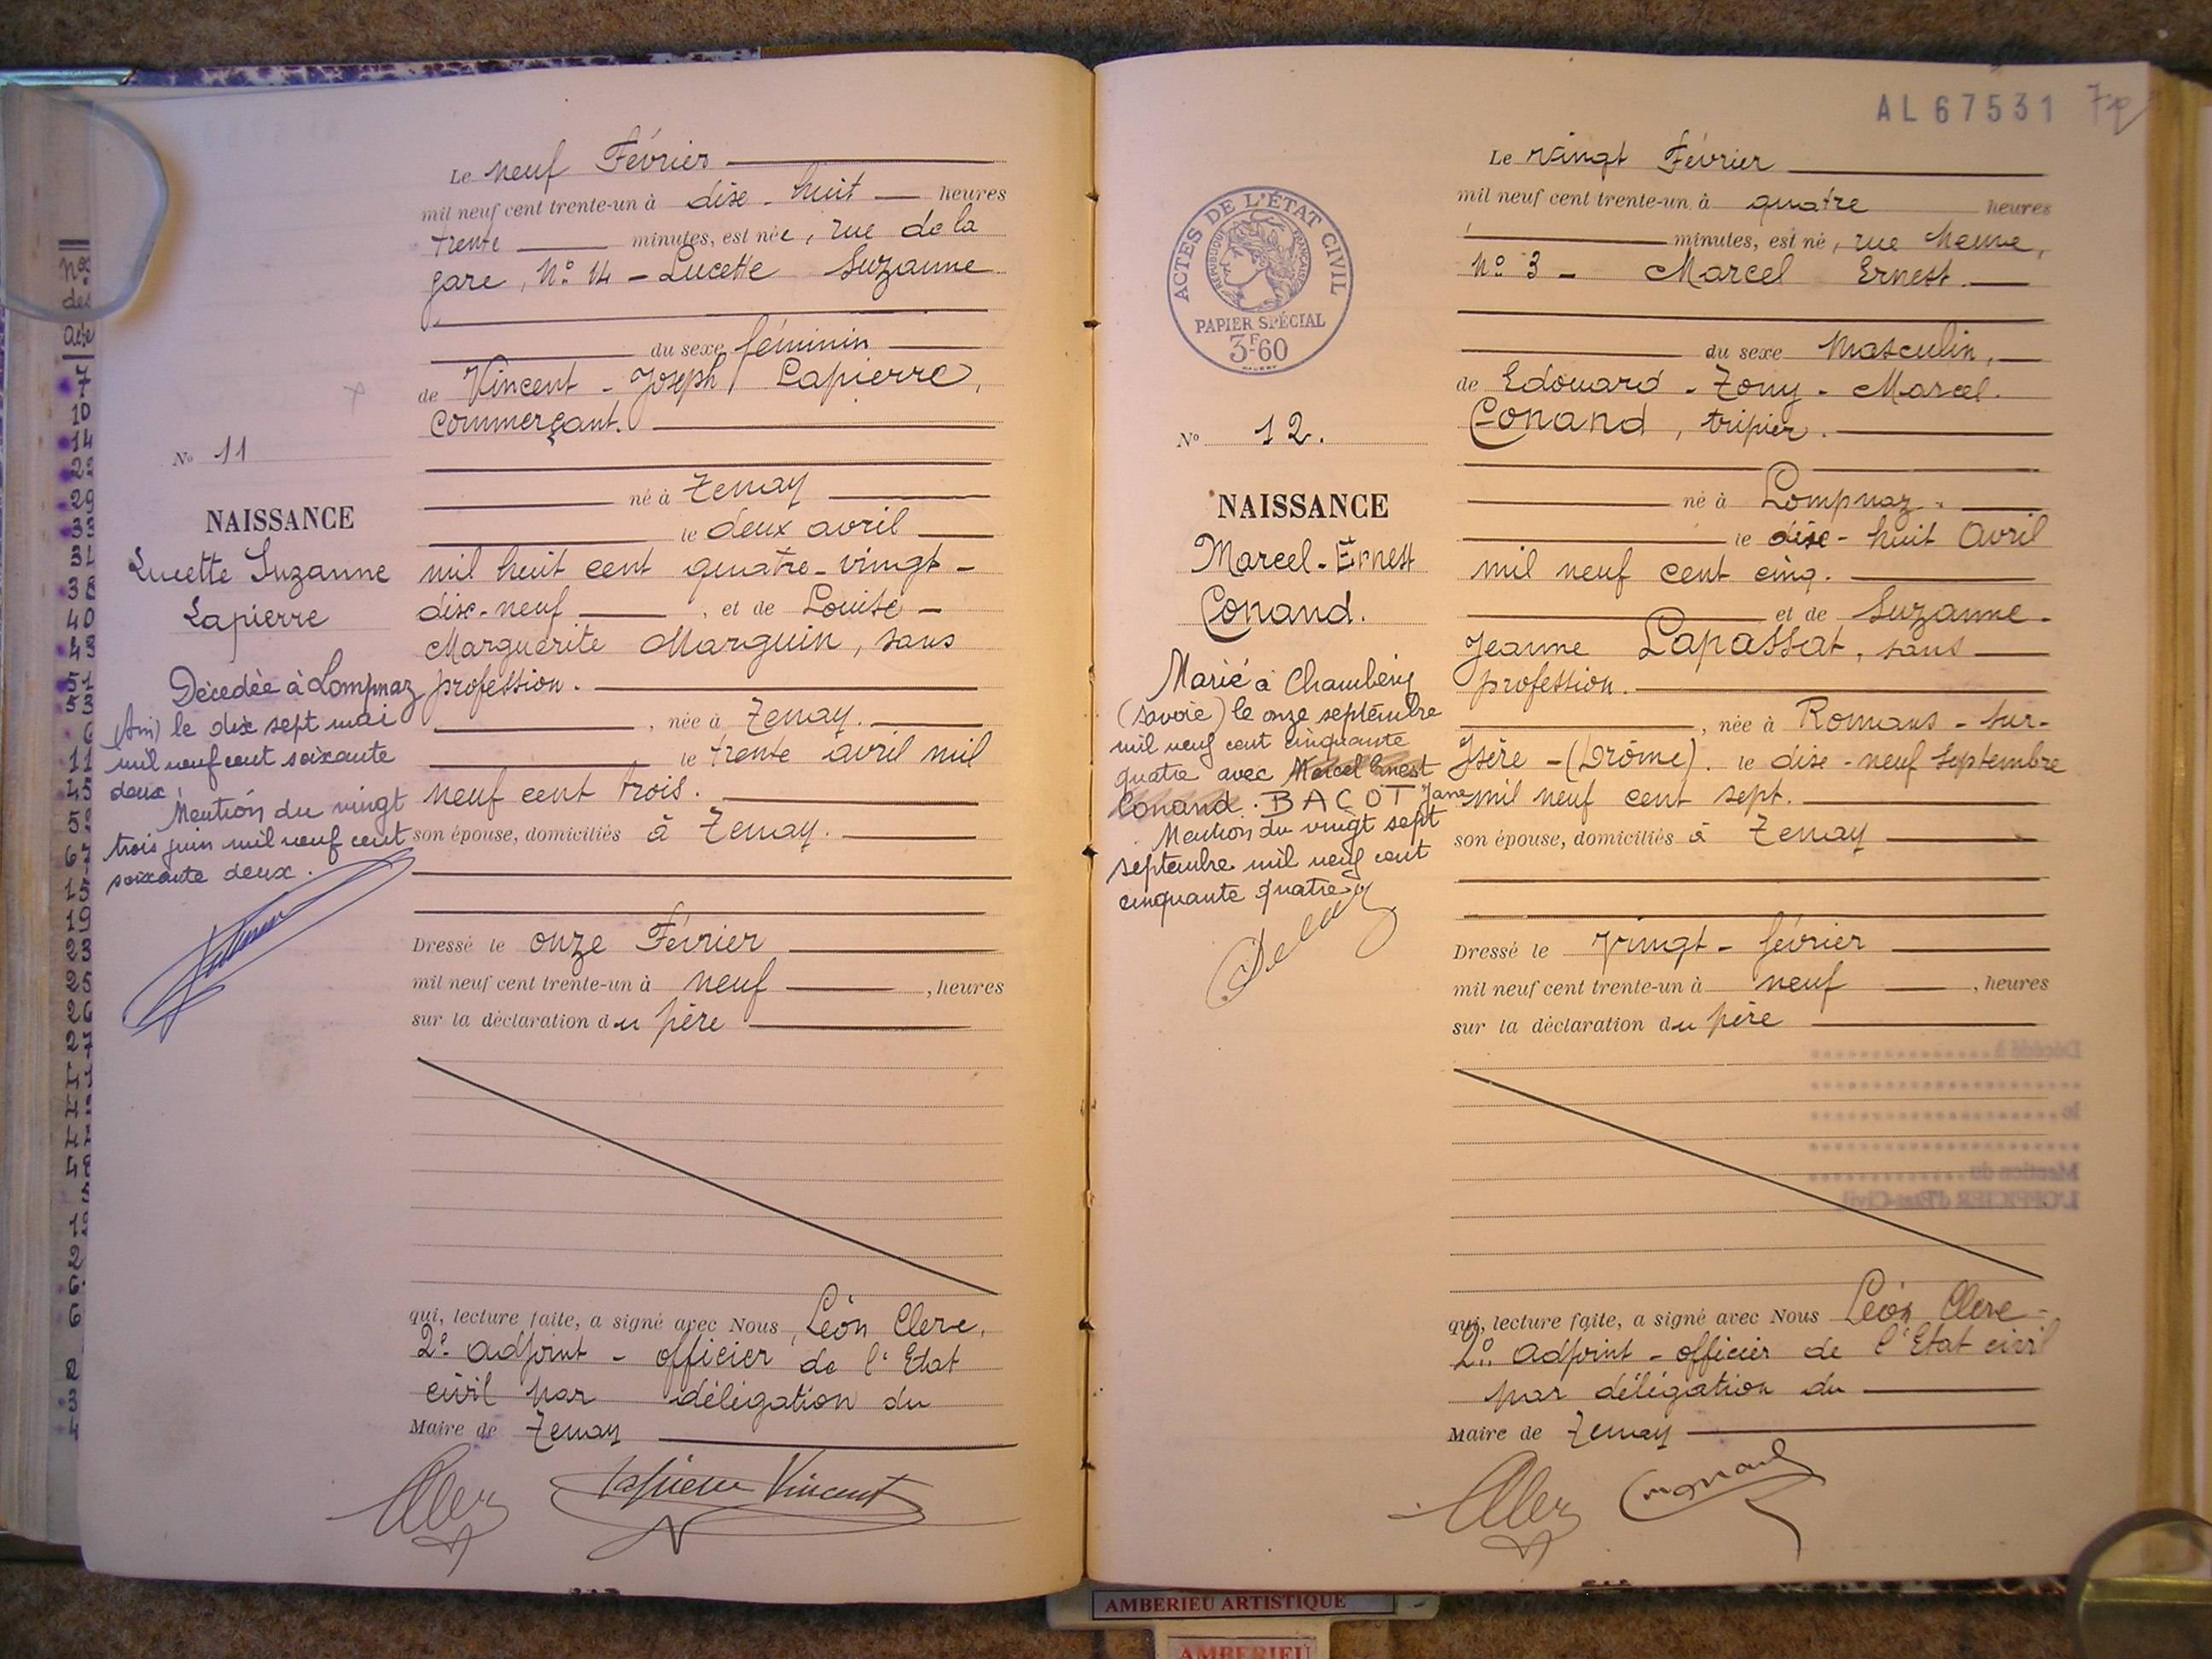 Le neuf Février
mil neuf cent trente-un à dise-huit heures
trente minutes, est née, rue de la
gare, N° 14 - Lucette Suzanne
du sexe féminin
de Vincent - Joseph Lapierre,
Commerçant.
né à Tenay
le deux avril
mil huit cent quatre-vingt-
dise-neuf, et de Louise -
Marguerite Marguin, sans
profession.
, née à Tenay.
le trente avril mil
neuf cent trois.
son épouse, domiciliés à Tenay.
Dressé le onze Février
mil neuf cent trente-un à neuf, heures
sur la déclaration du père
qui, lecture faite, a signé avec Nous, Léon Clerc,
2e adjoint - officier de l'Etat
civil par déligation du
Maire de Tenay
Lapierre Vincent
N° 11
NAISSANCE
Lucette Suzanne
Lapierre
Décédée à Lompnaz
(Ain) le dix sept mai
mil neuf cent soixante
deux.
Mention du vingt
trois juin mil neuf cent
soixante deux.
AL 67531
ACTES DE L'ÉTAT CIVIL
RÉPUBLIQUE FRANÇAISE
PAPIER SPÉCIAL
3F60
N° 12.
NAISSANCE
Marcel-Ernest
Conand.
Marié à Chambéry
(Savoie) le onze septembre
mil neuf cent cinquante
quatre avec Marcel Ernest
Conand. BACOT Jane
Mention du vingt sept
septembre mil neuf cent
cinquante quatre
Le vingt Février
mil neuf cent trente-un à quatre heures
minutes, est né, rue neuve,
N° 3 - Marcel Ernest.
du sexe Masculin,
de Edouard - Tony - Marcel.
Conand, tripier.
né à Lompnaz.
le dise-huit Avril
mil neuf cent cinq.
et de Suzanne.
Jeanne Lapassat, sans
profession.
, née à Romans-sur-
Isère - (Drôme). le dise-neuf Septembre
mil neuf cent sept.
son épouse, domiciliés à Tenay
Dressé le vingt - février
mil neuf cent trente-un à neuf, heures
sur la déclaration du père
qui, lecture faite, a signé avec Nous Léon Clerc -
2e adjoint - officier de l'Etat civil
par déligation du
Maire de Tenay
AMBERIEU ARTISTIQUE
AMBERIEU